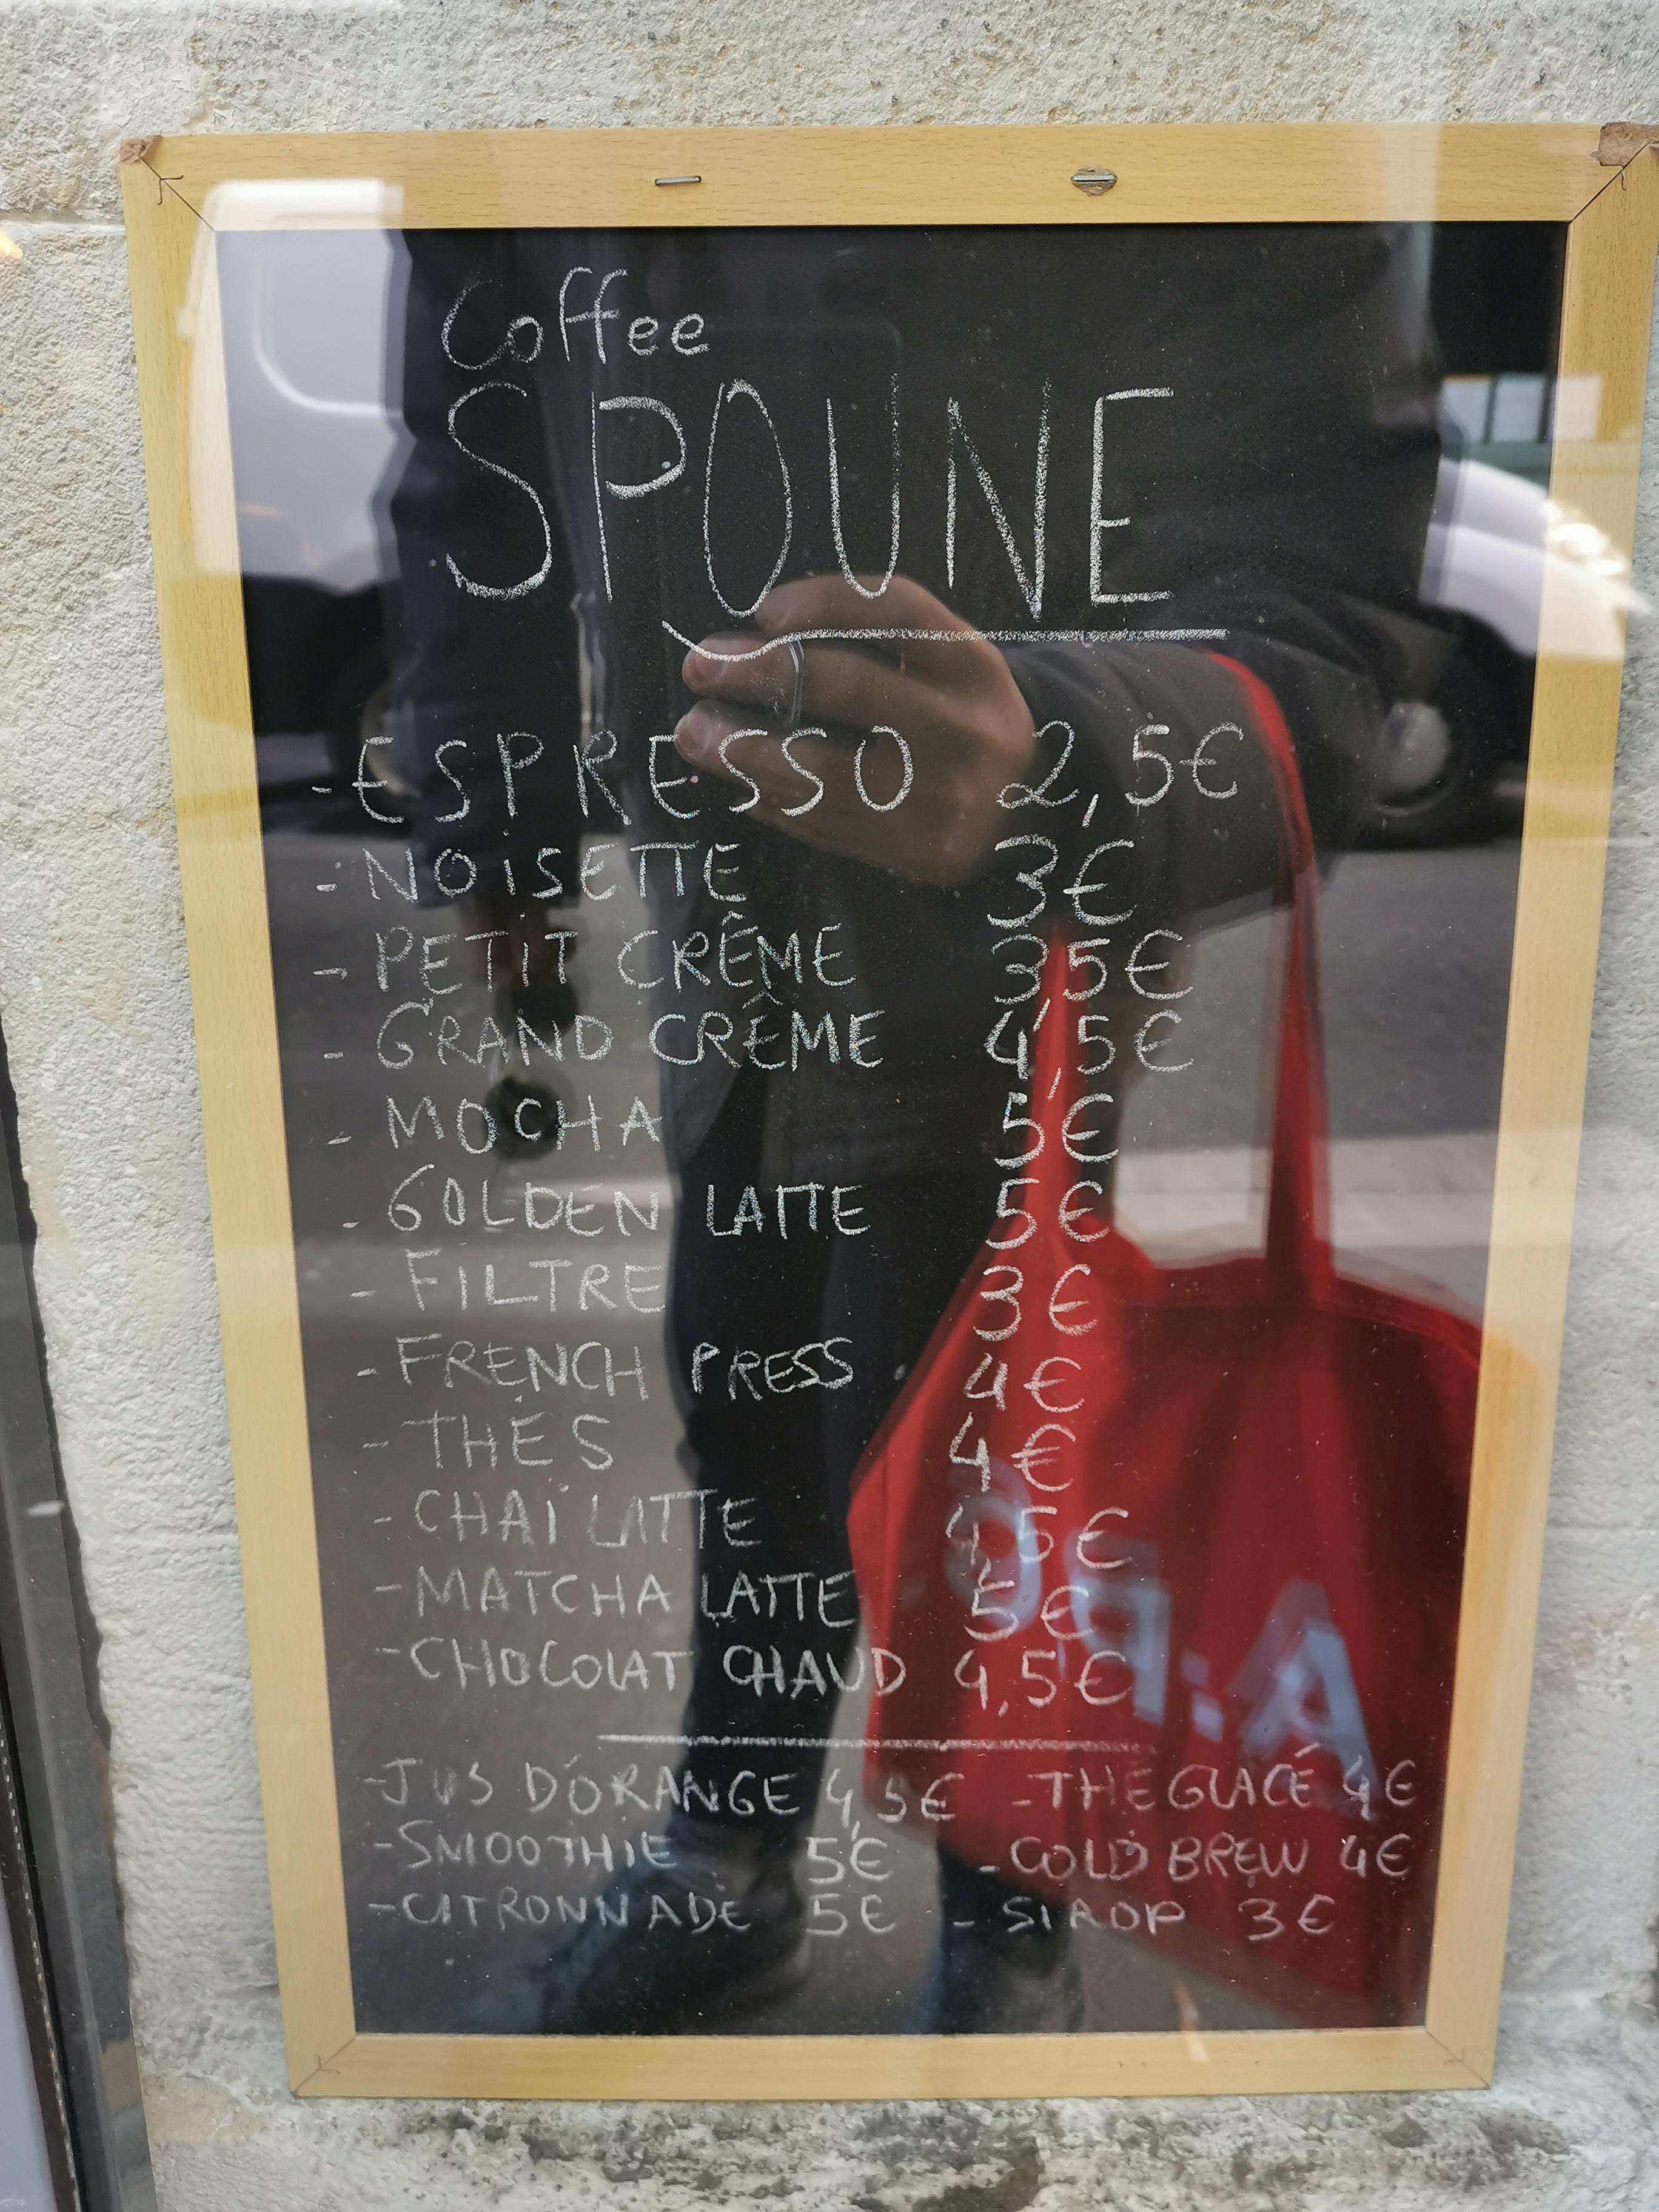 Coffee
SPOUNE
- ESPRESSO 2,5€
- NOISETTE 3€
- PETIT CRÊME 3,5€
- GRAND CRÊME 4,5€
- MOCHA 5€
- GOLDEN LATTE 5€
- FILTRE 3€
- FRENCH PRESS 4€
- THÉS 4€
- CHAÏ LATTE 4,5€
- MATCHA LATTE 5€
- CHOCOLAT CHAUD 4,5€
- JUS D'ORANGE 4,5€ - THÉ GLACÉ 4€
- SMOOTHIE 5€ - COLD BREW 4€
- CITRONNADE 5€ - SIROP 3€